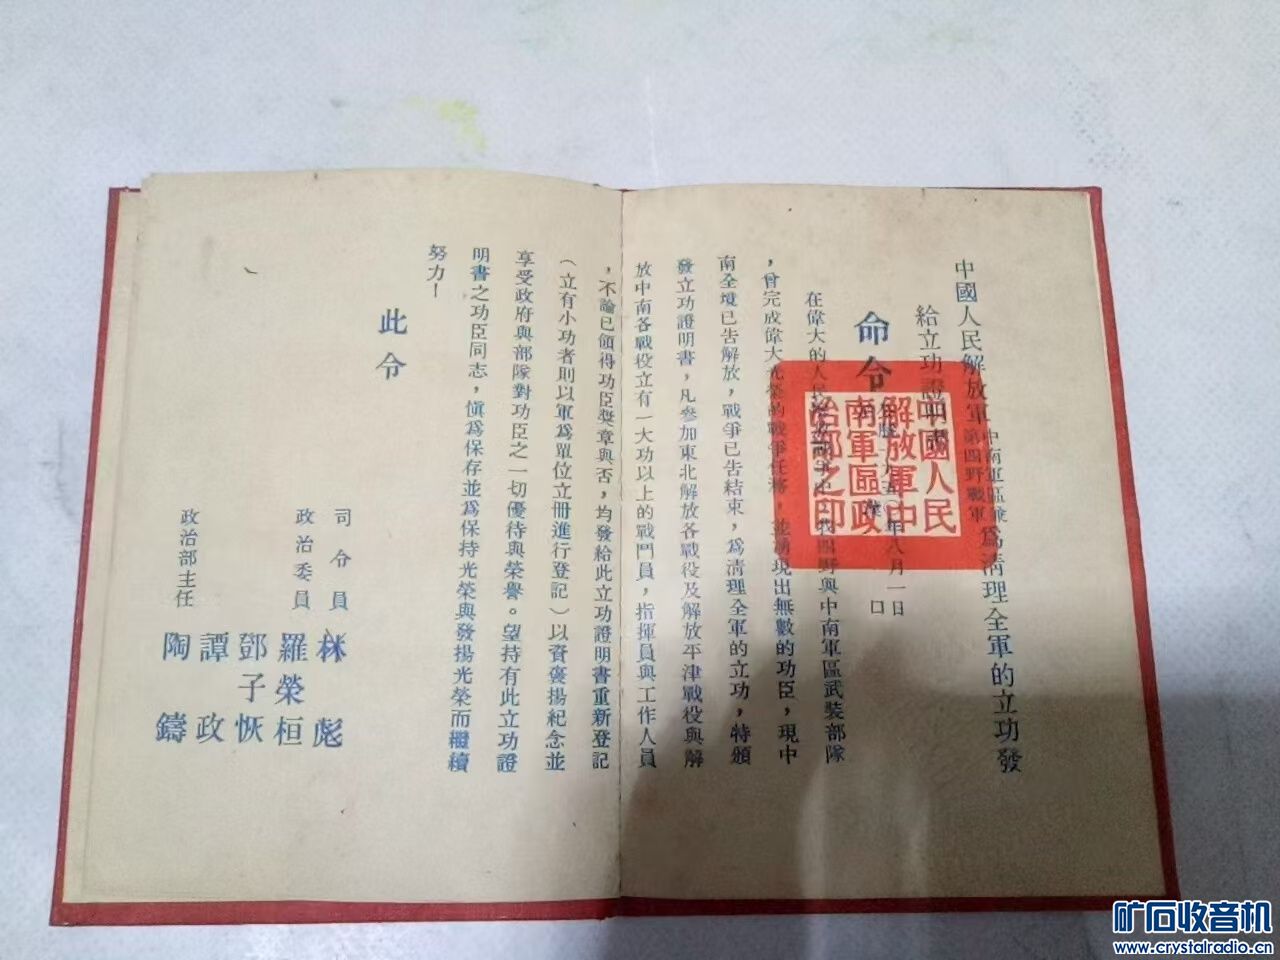 中國人民解放軍中南軍區兼第四野戰軍為清理全軍的立功發
給立功證明書
命令
一九五〇年八月一日
中國人民
解放軍中
南軍區政
治部之印
在偉大的人民解放戰爭中,我四野與中南軍區武裝部隊
,曾完成偉大光榮的戰爭任務,並湧現出無數的功臣,現中
南全境已吿解放,戰爭已吿結束,為清理全軍的立功,特頒
發立功證明書,凡參加東北解放各戰役及解放平津戰役與解
放中南各戰役立有一大功以上的戰鬥員,指揮員與工作人員
,不論已領得功臣獎章與否,均發給此立功證明書重新登記
(立有小功者則以軍為單位立册進行登記)以資褒揚紀念並
享受政府與部隊對功臣之一切優待與榮譽。望持有此立功證
明書之功臣同志,愼為保存並為保持光榮與發揚光榮而繼續
努力!
此令
司令員 林彪
政治委員 羅榮桓
鄧子恢
譚政
政治部主任 陶鑄
矿石收音机
www.crystalradio.cn